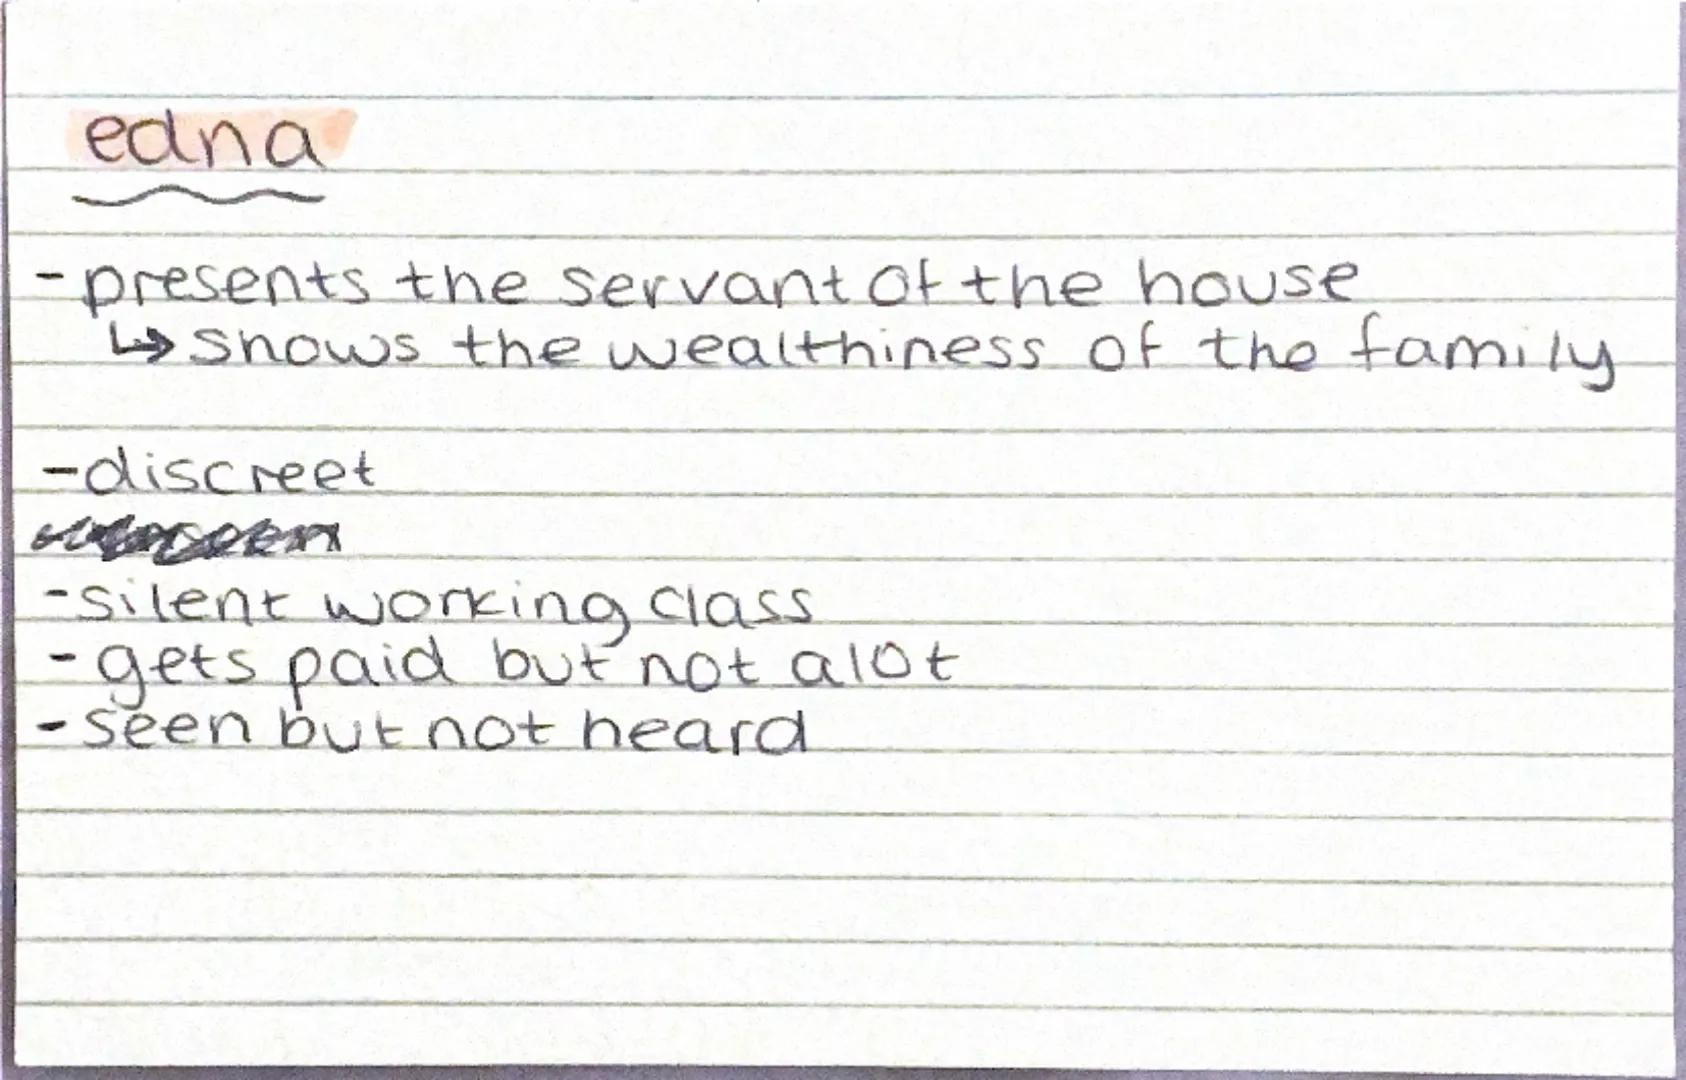 edna
- presents the servant of the house
↳ shows the wealthiness of the family
- discreet
- silent working class
- gets paid but not alot
- seen but not heard